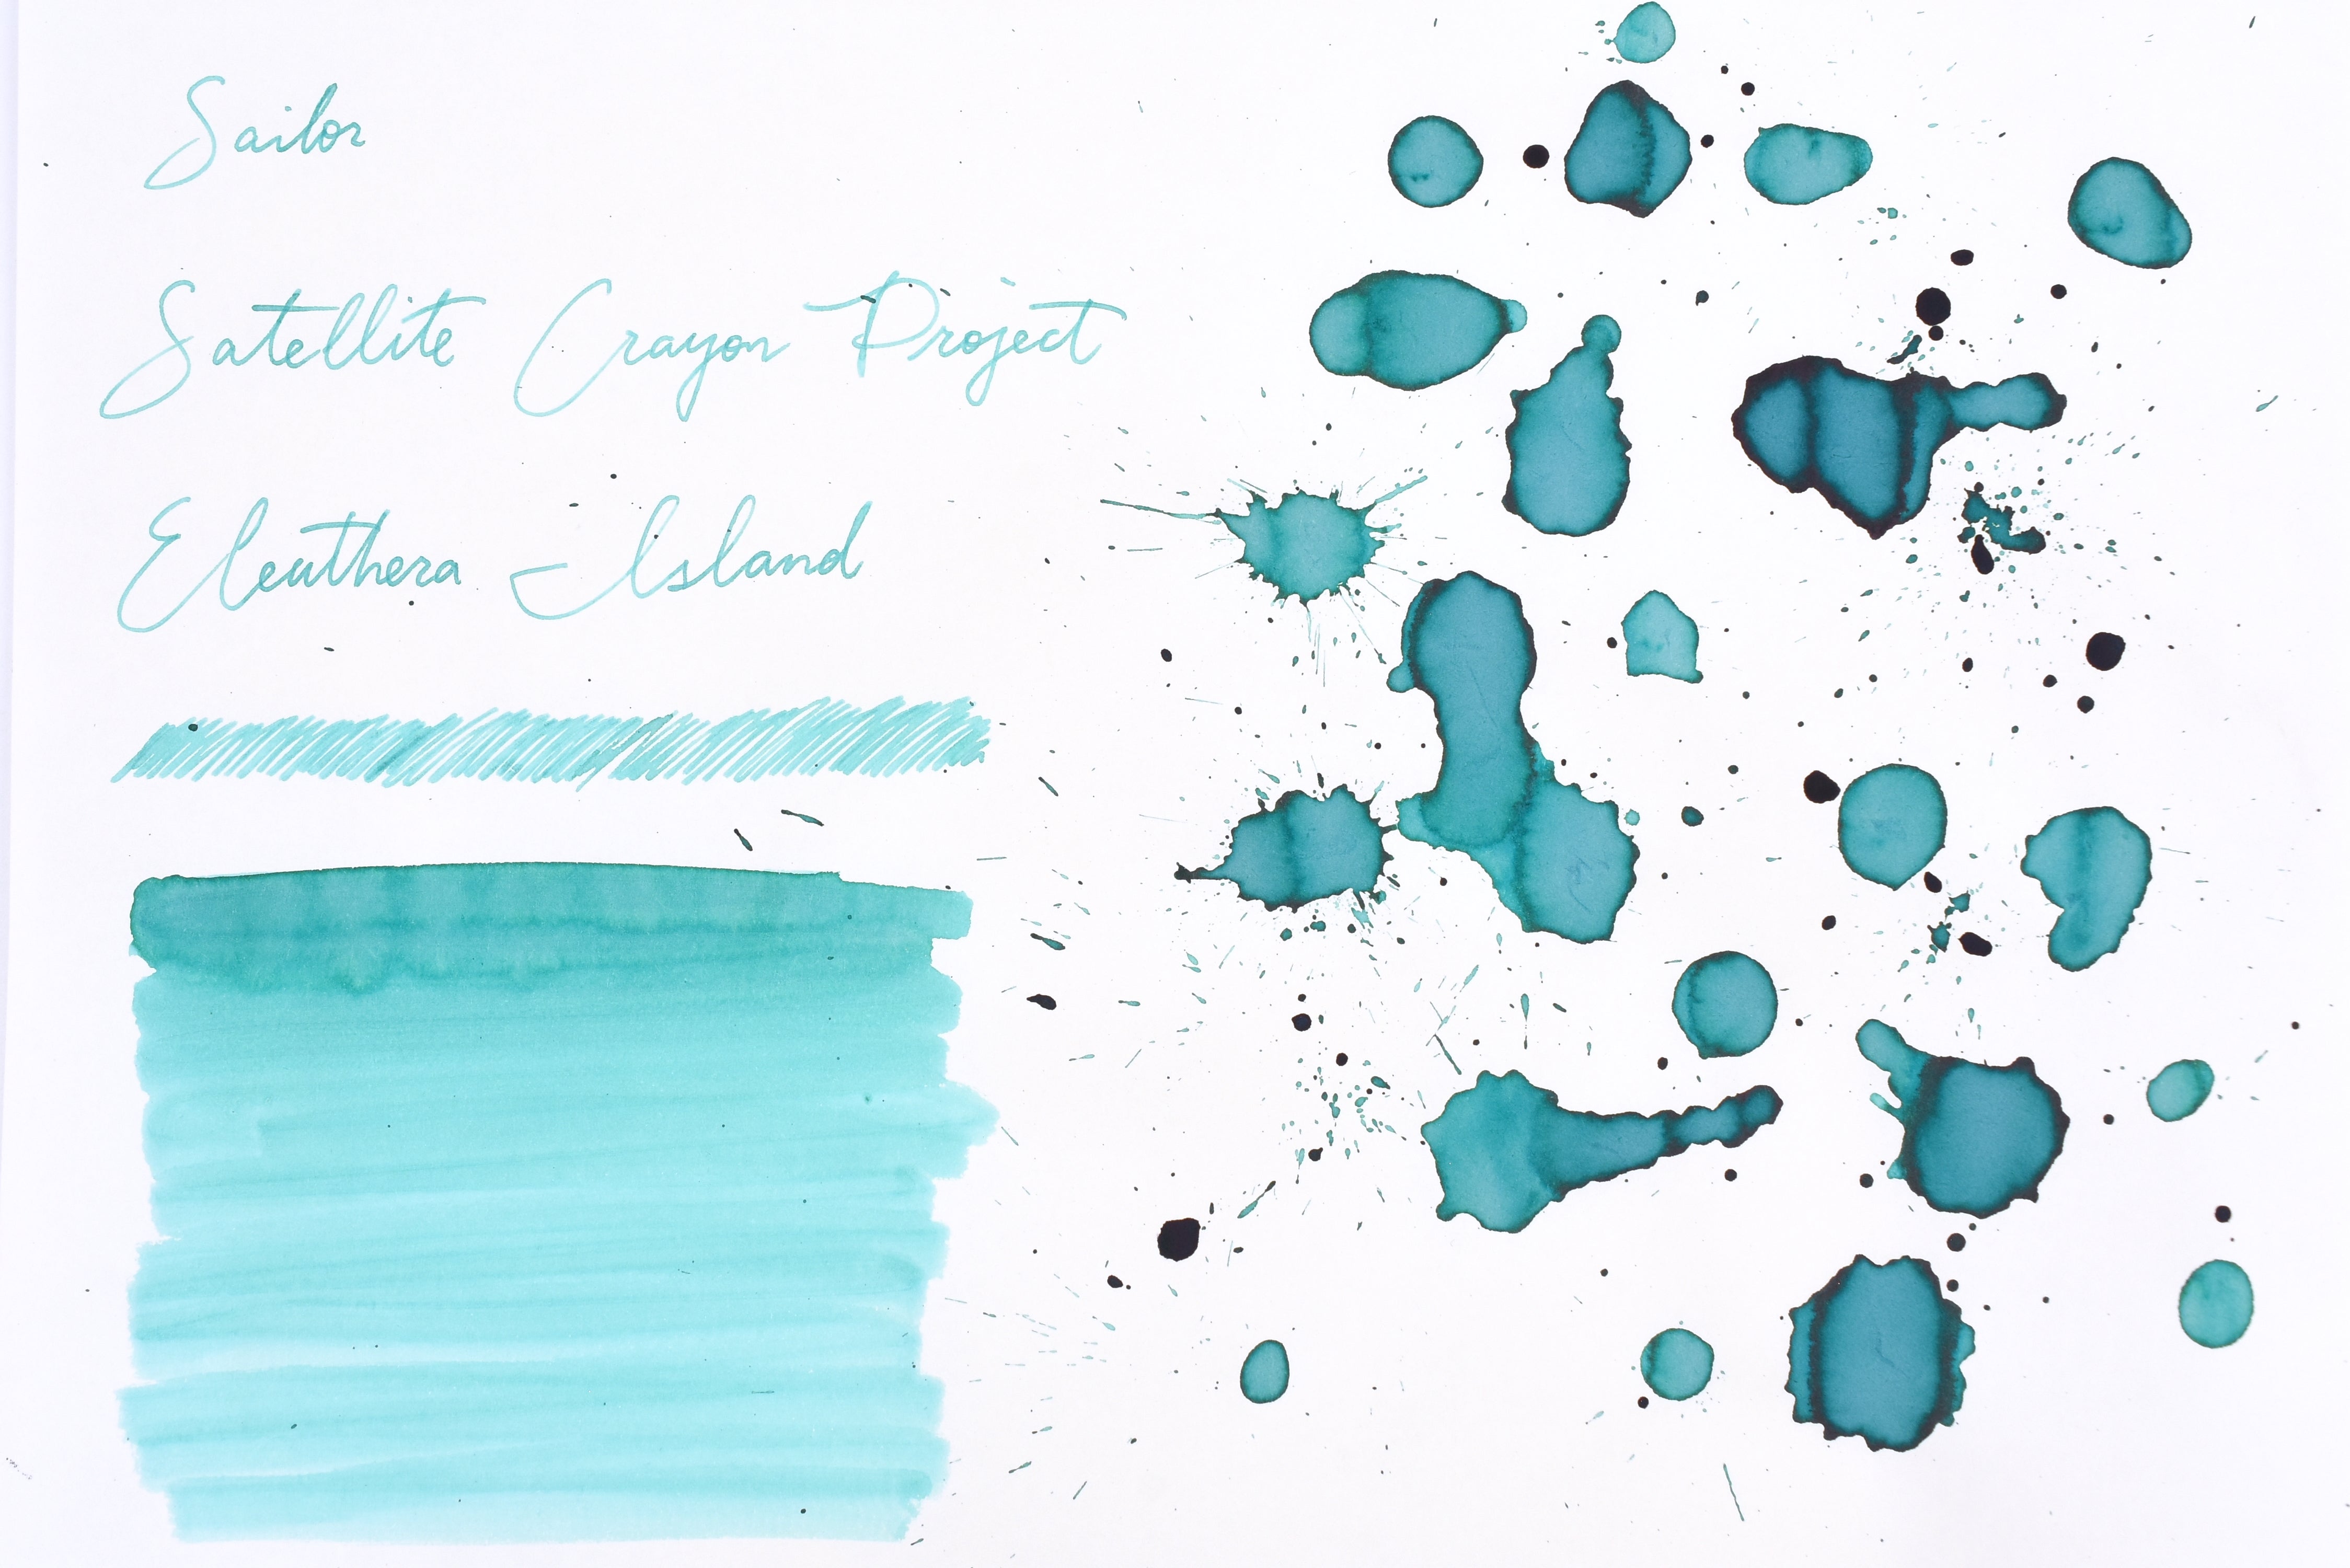 Sailor
Satellite Crayon Project
Eleuthera Island